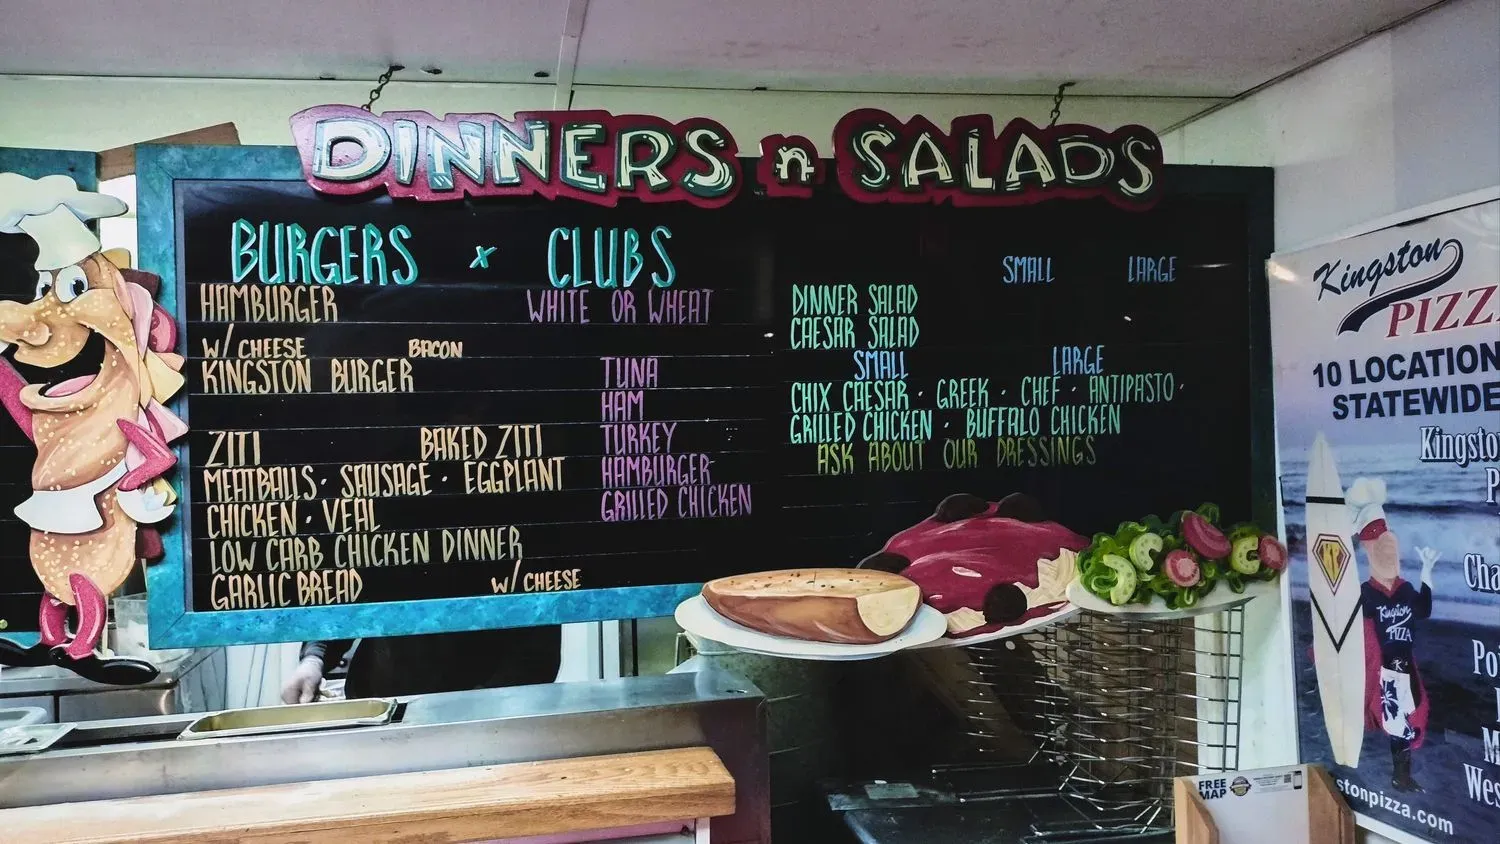 DINNERS n SALADS
BURGERS x CLUBS
HAMBURGER
W/ CHEESE BACON
KINGSTON BURGER
ZITI BAKED ZITI
MEATBALLS · SAUSAGE · EGGPLANT
CHICKEN · VEAL
LOW CARB CHICKEN DINNER
GARLIC BREAD W/ CHEESE
WHITE OR WHEAT
TUNA
HAM
TURKEY
HAMBURGER
GRILLED CHICKEN
SMALL LARGE
DINNER SALAD
CAESAR SALAD
SMALL LARGE
CHIX CAESAR · GREEK · CHEF · ANTIPASTO ·
GRILLED CHICKEN · BUFFALO CHICKEN
ASK ABOUT OUR DRESSINGS
Kingston
PIZZ
10 LOCATION
STATEWIDE
Kingsto
P
Cha
Poi
M
Wes
stonpizza.com
KP
Kingston
PIZZA
FREE
MAP